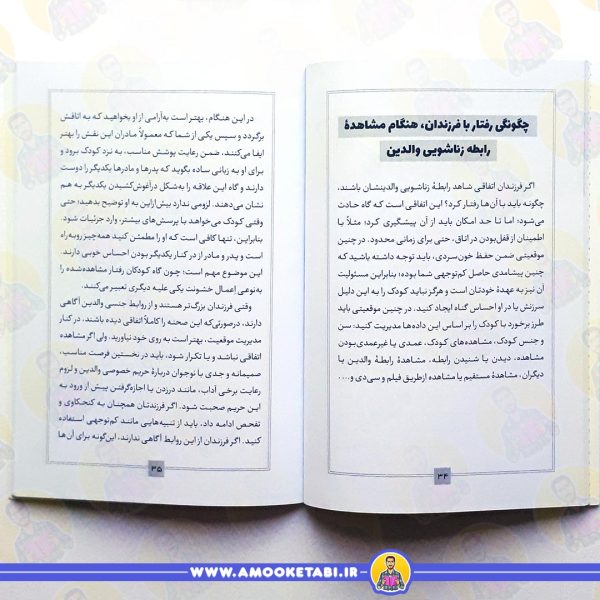 چگونگی رفتار با فرزندان، هنگام مشاهدهٔ
رابطه زناشویی والدین
اگر فرزندان اتفاقی شاهد رابطهٔ زناشویی والدینشان باشند،
چگونه باید با آن‌ها رفتار کرد؟ این اتفاقی است که گاه حادث
می‌شود؛ اما تا حد امکان باید از آن پیشگیری کرد؛ مثلاً با
اطمینان از قفل‌بودن در اتاق، حتی برای زمانی محدود. در چنین
موقعیتی ضمن حفظ خون‌سردی، باید توجه داشته باشید که
چنین پیشامدی حاصل کم‌توجهی شما بوده؛ بنابراین مسئولیت
آن نیز به عهدهٔ خودتان است و هرگز نباید کودک را به این دلیل
سرزنش یا در او احساس گناه ایجاد کنید. در چنین موقعیتی باید
طرز برخورد با کودک را بر اساس این داده‌ها مدیریت کنید: سن
و جنس کودک، مشاهده‌های کودک، عمدی یا غیرعمدی‌بودن
مشاهده، دیدن یا شنیدن رابطه، مشاهدهٔ رابطهٔ والدین یا
دیگران، مشاهدهٔ مستقیم یا مشاهده از طریق فیلم و سی‌دی و....
۳۴
در این هنگام، بهتر است به‌آرامی از او بخواهید که به اتاقش
برگردد و سپس یکی از شما که معمولاً مادران این نقش را بهتر
ایفا می‌کنند، ضمن رعایت پوشش مناسب، به نزد کودک برود و
برای او به زبانی ساده بگوید که پدرها و مادرها یکدیگر را دوست
دارند و گاه این علاقه را به‌شکل درآغوش‌کشیدن یکدیگر به هم
نشان می‌دهند. لزومی ندارد بیش از این به او توضیح بدهید؛ حتی
وقتی کودک می‌خواهد با پرسش‌های بیشتر، وارد جزئیات شود.
بنابراین، تنها کافی است که او را مطمئن کنید همه‌چیز روبه‌راه
است و پدر و مادر از در کنار یکدیگر بودن احساس خوبی دارند.
این موضوع مهم است؛ چون گاه کودکان رفتار مشاهده‌شده را
به‌نوعی اعمال خشونت یکی علیه دیگری تعبیر می‌کنند.
وقتی فرزندان بزرگ‌تر هستند و از روابط جنسی والدین آگاهی
دارند، درصورتی‌که این صحنه را کاملاً اتفاقی دیده باشند، در کنار
مدیریت موقعیت، بهتر است به روی خود نیاورید. ولی اگر مشاهده
اتفاقی نباشد و یا تکرار شود، باید در نخستین فرصت مناسب،
صمیمانه و جدی با نوجوان دربارهٔ حریم خصوصی والدین و لزوم
رعایت برخی آداب، مانند درزدن یا اجازه‌گرفتن پیش از ورود به
این حریم صحبت شود. اگر فرزندتان همچنان به کنجکاوی و
تفحص ادامه داد، باید از تنبیه‌هایی مانند کم‌توجهی استفاده
کنید. اگر فرزندان از این روابط آگاهی ندارند، این‌گونه برای آن‌ها
۳۵
WWW.AMOOKETABI.IR